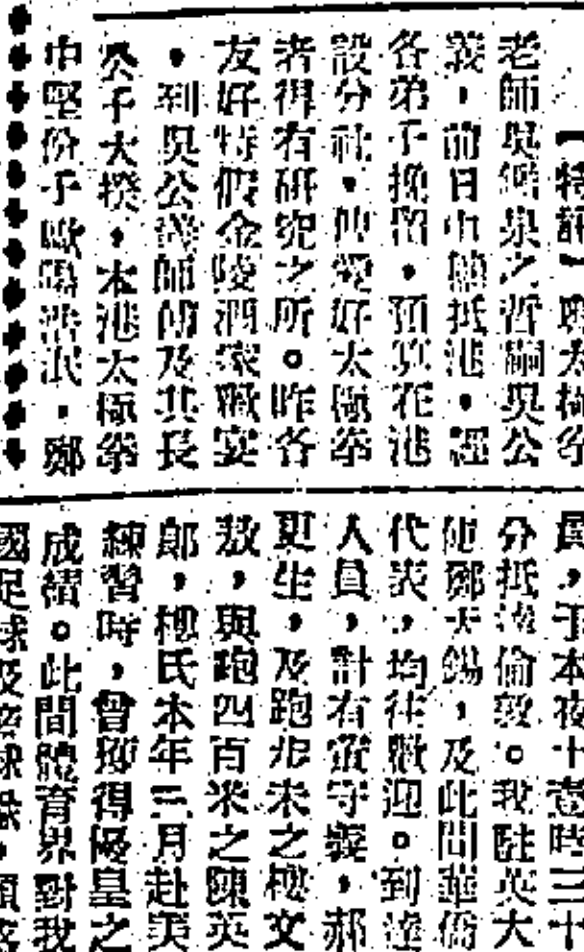 【特訊】聘太極拳
老師吳鑑泉之哲嗣吳公
義，前日由穗抵港，經
各弟子挽留，預算在港
設分社，使愛好太極拳
者得有研究之所。昨各
友好特假金陵酒家職宴
，到吳公義師傅及其長
公子大揆，本港太極拳
中堅份子歐陽浩民，鄭
員，于本夜十壹時三十
分抵達倫敦。我駐英大
使鄭天錫，及此間華僑
代表，均往歡迎。到達
人員，計有董守義，郝
更生，及跑步未之樓文
敖，與跑四百米之陳英
郎，樓氏本年三月赴美
練習時，曾獲得優皇之
成績。此間體育界對我
國足球及